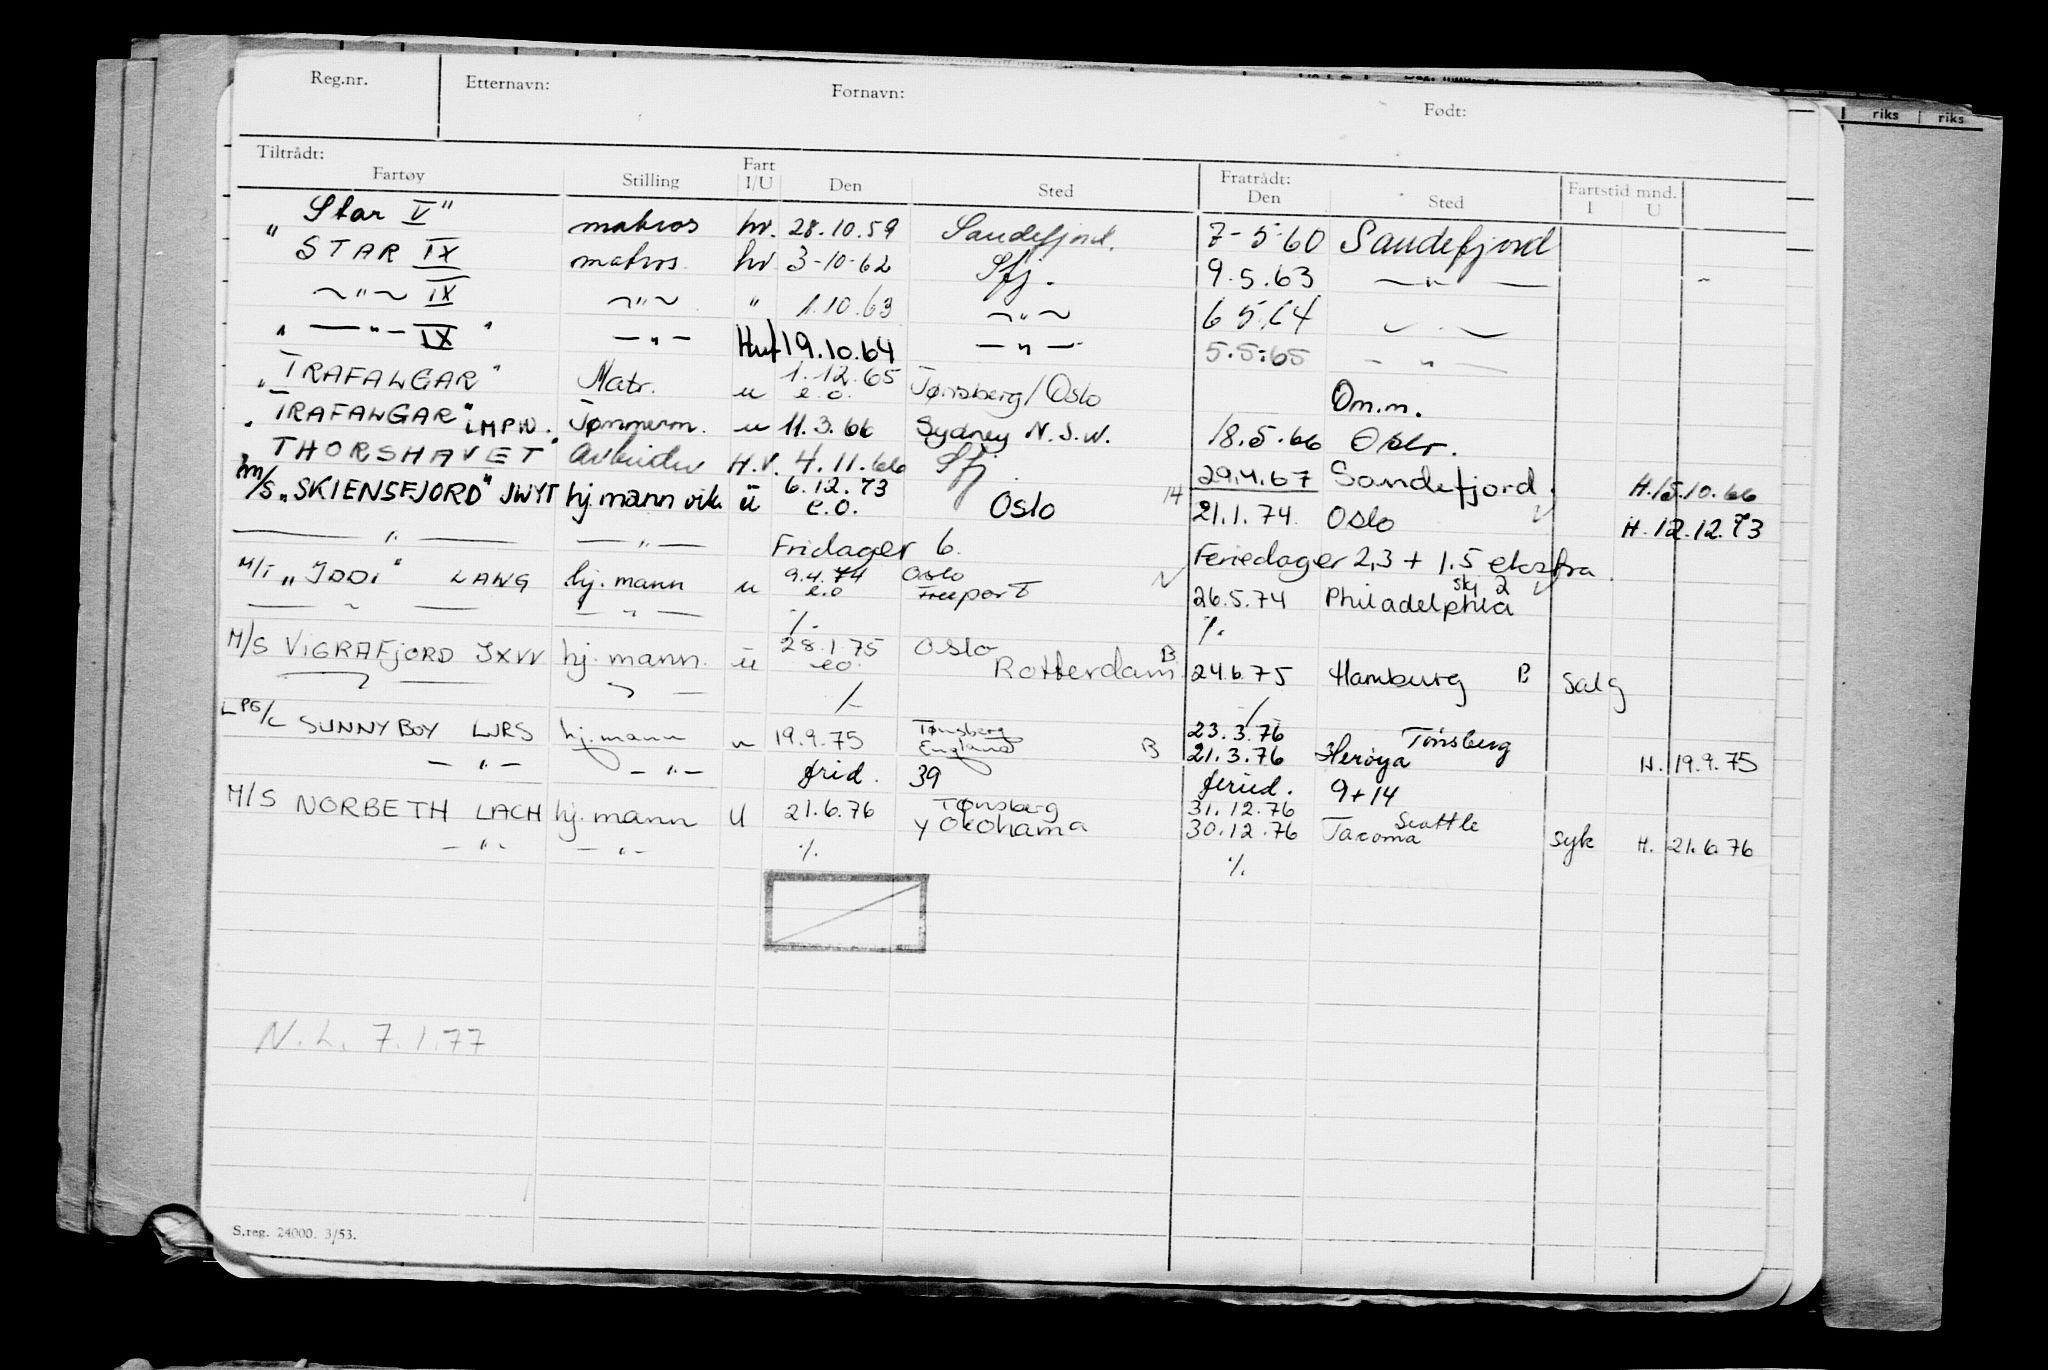 Reg.nr. Etternavn: Fornavn: Født:
Tiltrådt: Fartøy Stilling Fart I/U Den Sted Fratrådt: Den Sted Fartstid mnd. I U
riks riks
" Star V" matros hv. 28.10.59 Sandefjord. 7-5-60 Sandefjord
STAR IX matros. hv 3-10-62 Sfj. 9.5.63 — " —
~ " ~ IX ~ " ~ " 1.10.63 ~ " ~ 6 5.64
" — " — IX " — " — Hvf 19.10.64 — " — 5.5.65 — " —
" TRAFALGAR " Matr. u 1.12.65 e.o. Tønsberg/Oslo Om.m.
" TRAFALGAR " LMPW. Tømmerm. u 11.3.66 Sydney N.S.W. 18.5.66 Oslo.
" THORSHAVET " Arbeider H.V. 4.11.66 Sfj 29.4.67 Sandefjord. H. 15.10.66
M/S "SKIENSFJORD" JWYT hj.mann vik. u 6.12.73 e.o. Oslo 14 21.1.74 Oslo H. 12.12.73
— " — — " — Fridager 6. Feriedager 2,3 + 1.5 ekstra.
M/T "JDDI" LAWG hj.mann u 9.4.74 e.o Oslo Freeport 26.5.74 Philadelphia
— " — — " — %. %.
M/S VIGRAFJORD JXVV hj.mann. u 28.1.75 e.o. Oslo Rotterdam B 24.6.75 Hamburg B Salg
LPG/C SUNNY BOY LJRS hj.mann u 19.9.75 Tønsberg England B 23.3.76 Tønsberg 21.3.76 Herøya H. 19.9.75
— " — — " — frid. 39 feried. 9+14
M/S NORBETH LACH hj.mann U 21.6.76 Tønsberg Yokohama 31.12.76 Seattle 30.12.76 Tacoma Syk H. 21.6.76
— " — — " — %. %.
N.L. 7.1.77
S.reg. 24000. 3/53.